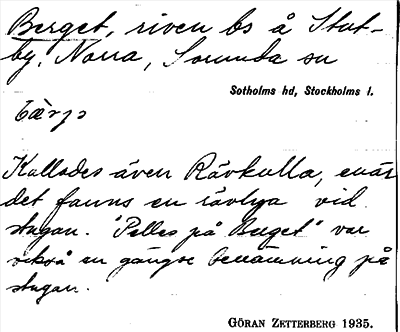 Berget, riven bs å Stut-
by, Norra, Sorunda sn
Sotholms hd, Stockholms l.
bærjə
Kallades även Rävkulla, enär
det fanns en rävlya vid
stugan. "Pelles på Berget" var
också en gängse benämning på
stugan.
GÖRAN ZETTERBERG 1935.